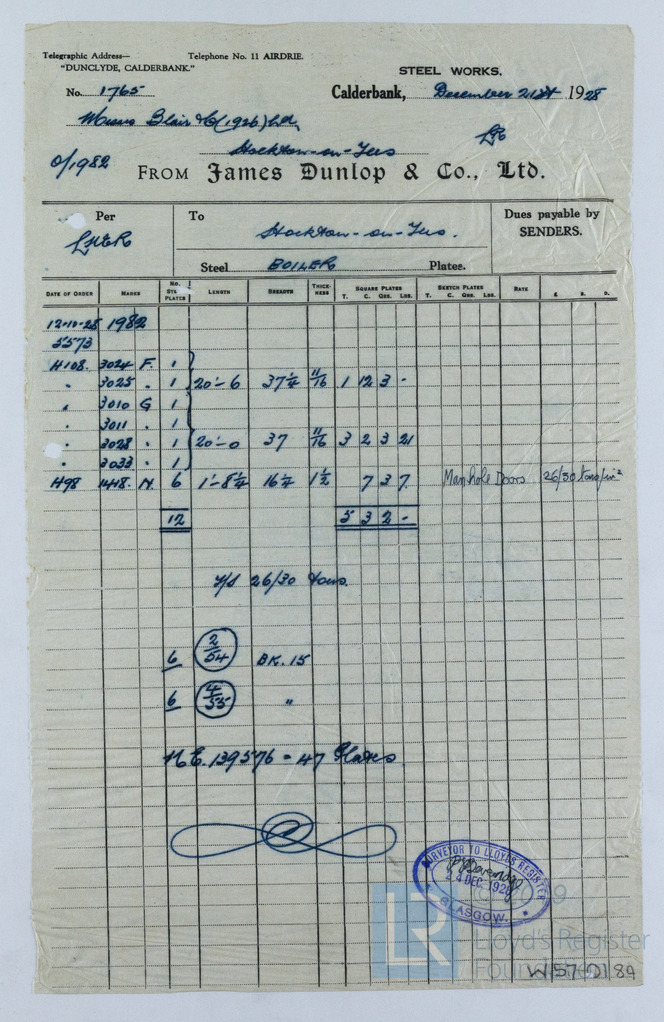 Telegraphic Address— Telephone No. 11 AIRDRIE.
"DUNCLYDE, CALDERBANK."
STEEL WORKS.
No. 1765 Calderbank, December 21st 1928
Messrs Blair & Co (1926) Ltd,
Stockton-on-Tees
O/1982 FROM James Dunlop & Co., Ltd.
Per To Dues payable by
LNER Stockton-on-Tees. SENDERS.
Steel BOILER Plates.
DATE OF ORDER MARKS No. STL PLATES LENGTH BREADTH THICKNESS SQUARE PLATES T. C. QRS. LBS. SKETCH PLATES T. C. QRS. LBS. RATE £ S. D.
12-10-28 1982
5573
H108. 3024 F. 1
" 3025 " 1 20'-6 37¼ 11/16 1 12 3 -
" 3010 G 1
3011 " 1
" 3028 " 1 20'-0 37 11/16 3 2 3 21
" 3033 " 1
H98 1418. N 6 1'-8¼ 16¼ 1½ 7 3 7 Manhole Doors 26/30 tons/in²
12 5 3 2 -
T/S 26/30 tons.
6 2/54 BK. 15
6 4/55 "
N.E. 139576 - 47 Plates
SURVEYOR TO LLOYDS REGISTER
24 DEC 1928
GLASGOW.
LR
Lloyd's Register
Foundation
W570189